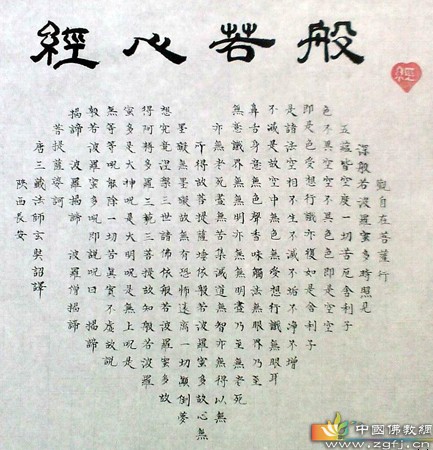 般若心經
經
觀自在菩薩行
深般若波羅蜜多時照見
五蘊皆空度一切苦厄舍利子
色不異空空不異色色即是空空
即是色受想行識亦復如是舍利子
是諸法空相不生不滅不垢不淨不增
不減是故空中無色無受想行識無眼耳
鼻舌身意無色聲香味觸法無眼界乃至
無意識界無無明亦無無明盡乃至無老死
亦無老死盡無苦集滅道無智亦無得以無
所得故菩提薩埵依般若波羅蜜多故心無
罣礙無罣礙故無有恐怖遠離一切顛倒夢
想究竟涅槃三世諸佛依般若波羅蜜多故
得阿耨多羅三藐三菩提故知般若波羅
蜜多是大神呪是大明呪是無上呪是
無等等呪能除一切苦真實不虛故說
般若波羅蜜多呪即說呪曰 揭諦
揭諦 波羅揭諦 波羅僧揭諦
菩提薩婆訶
唐三藏法師玄奘詔譯
陝西長安
中國佛教網
www.zgfj.cn